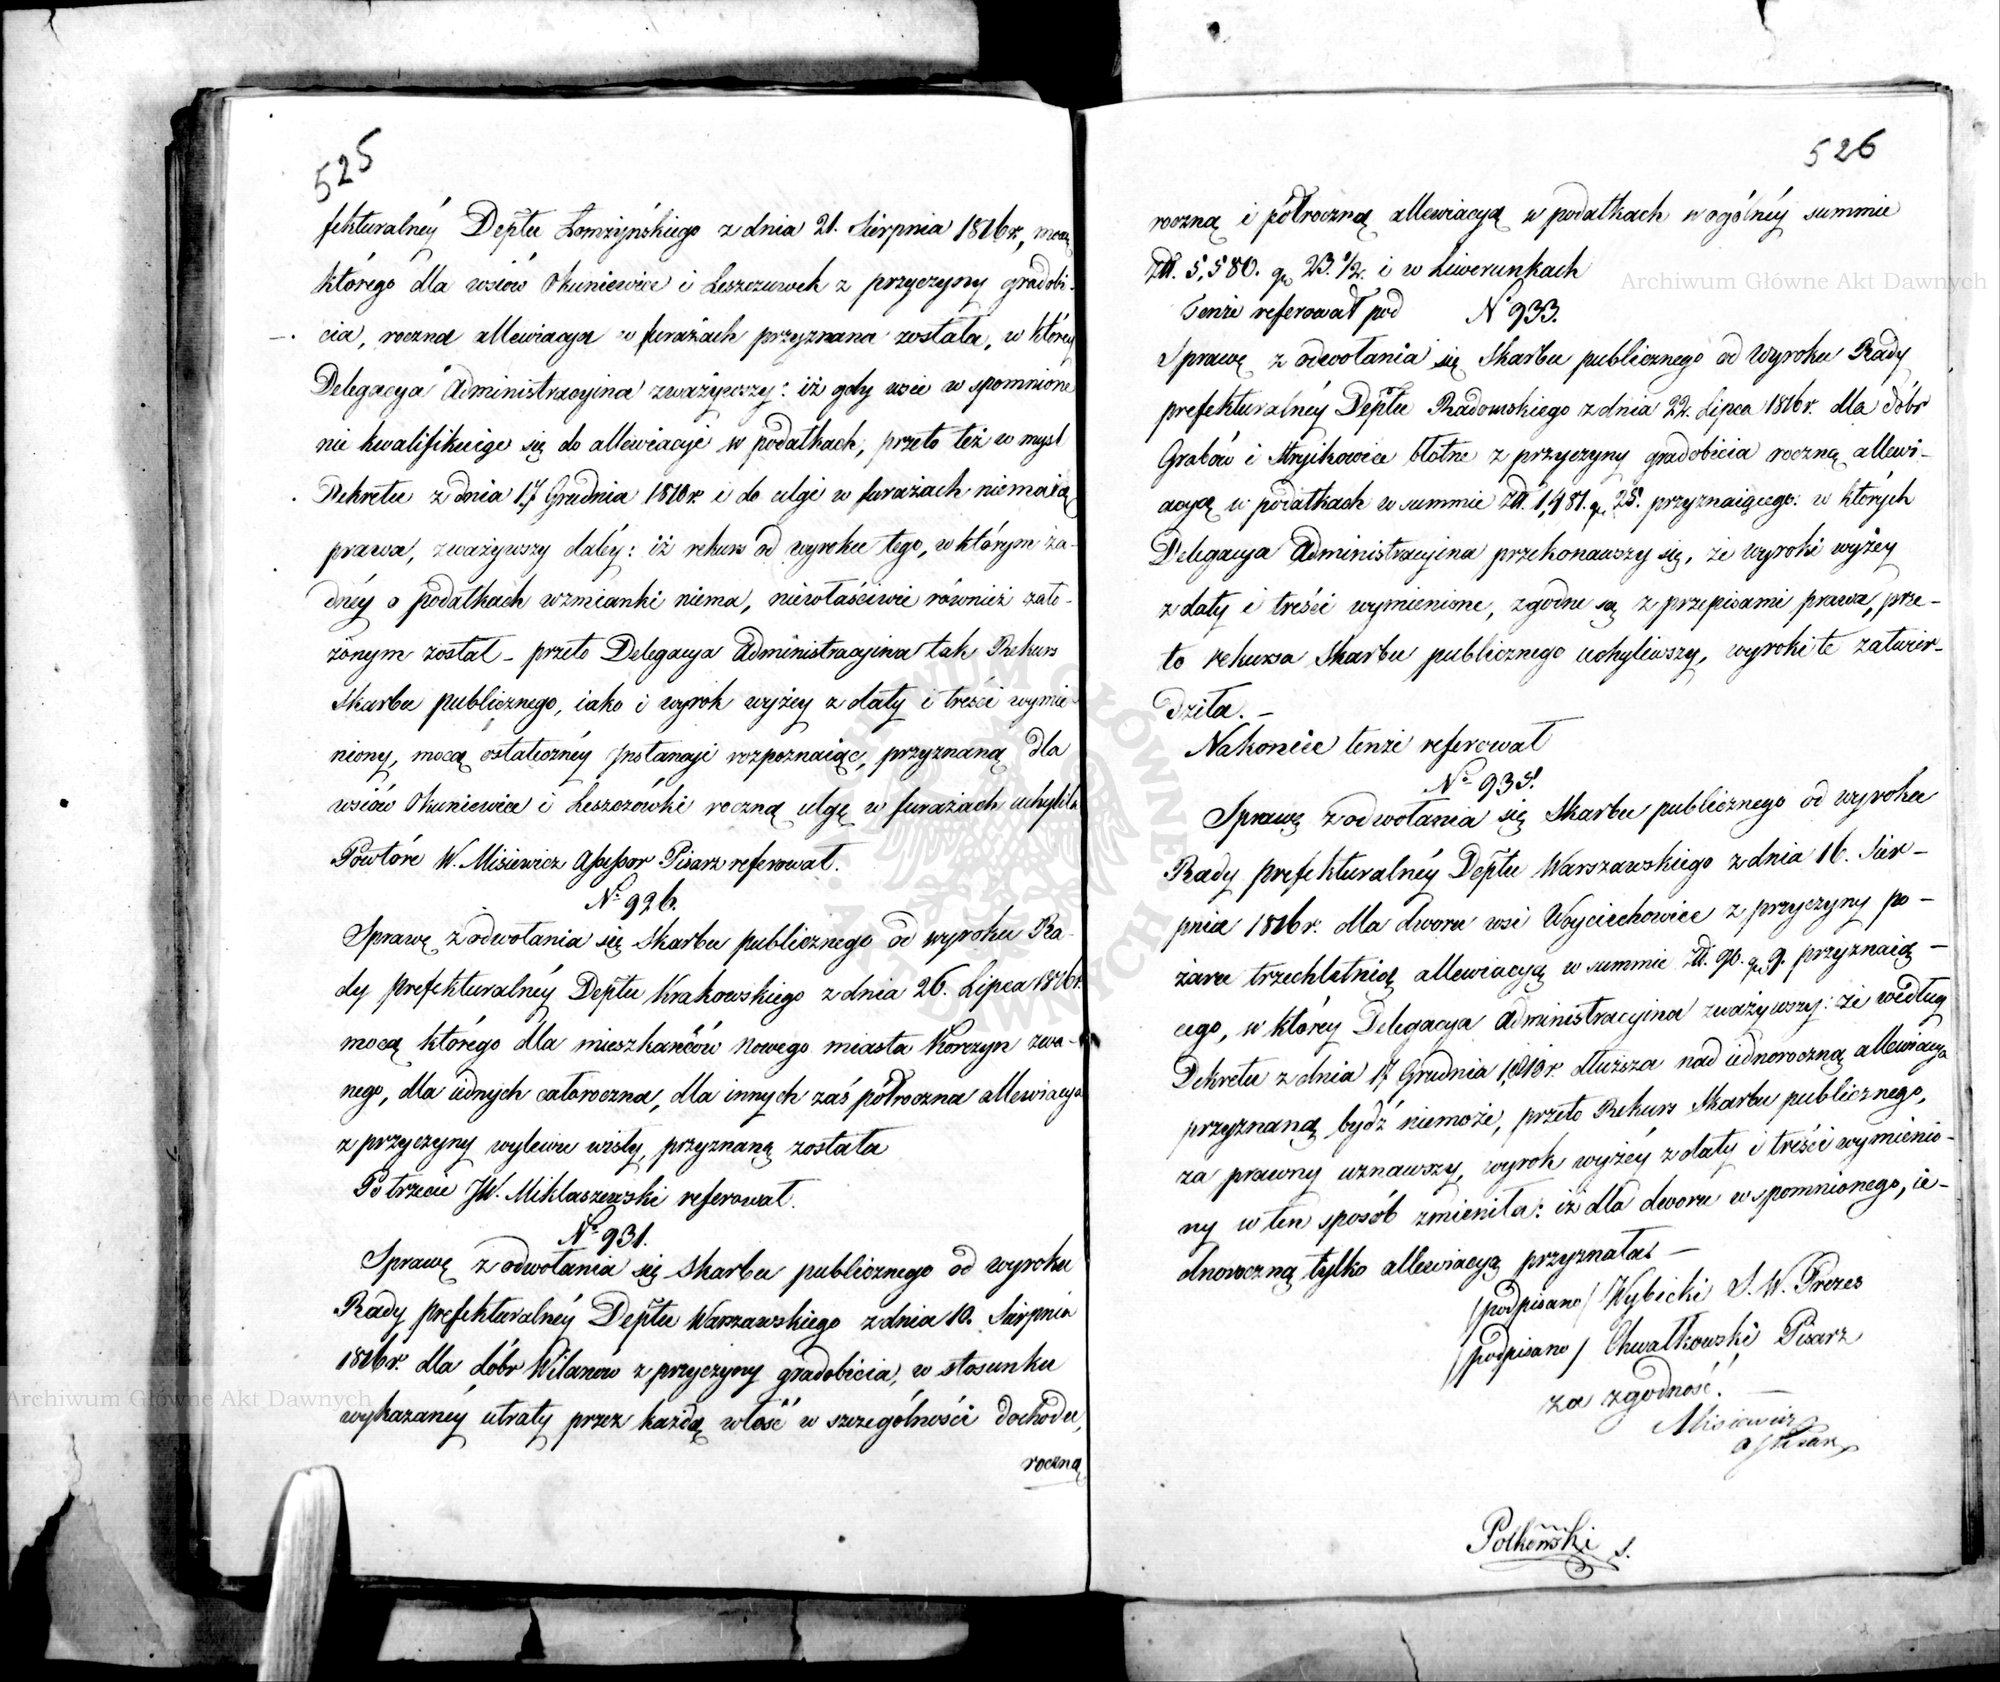 525
fekturalnéy Deptu Łomżyńskiego z dnia 21. Sierpnia 1816 r., mocą
którego dla wsiów Okuniewice i Leszczuwek z przyczyny gradobi-
cia, roczna allewiacya w furażach przyznana została, w któréy
Delegacya Administracyina zważywszy: iż gdy wsie wspomnióne
nie kwalifikuią się do allewiacyi w podatkach, przeto też w myśl
Dekretu z dnia 17 Grudnia 1810 r. i do ulgi w furażach niemaią
prawa, zważywszy daléy: iż rekurs od wyroku tego, w którym ża-
dnéy o podatkach wzmianki niema, niewłaściwie również zało-
żonym został – przeto Delegacya Administracyina tak Rekurs
Skarbu publicznego, iako i wyrok wyżey z daty i treści wymie
niony, mocą ostatecznéy Instancyi rozpoznaiąc, przyznaną dla
wsiów Okuniewice i Leszczówki roczną ulgę w furażach uchyliła
Powtóre W. Misiewicz Assessor Pisarz referował.
No 926.
Sprawę z odwołania się Skarbu publicznego od wyroku Ra-
dy prefekturalnéy Deptu Krakowskiego z dnia 26. Lipca 1816 r.
mocą którego dla mieszkańców Nowego miasta Korczyn zwa-
nego, dla iednych całoroczna, dla innych zaś półroczna allewiacya
z przyczyny wylewu wisły, przyznaną została
Potrzecie JW. Miklaszewski referował.
No 931.
Sprawę z odwołania się Skarbu publicznego od wyroku
Rady prefekturalnéy Deptu Warszawskiego z dnia 10. Sierpnia
1816 r. dla dóbr Wilanów z przyczyny gradobicia, w stosunku
wykazanéy utraty przez każdą włość w szczególności dochodu,
roczną
526
roczną i półroczną allewiacyą w podatkach w ogólnéy summie
Zł. 5,580. gr 23. 1/2. i w Liwerunkach
Tenże referował pod No 933.
Sprawę z odwołania się Skarbu publicznego od Wyroku Rady
prefekturalnéy Deptu Radomskiego z dnia 22. Lipca 1816 r. dla dóbr
Grabów i Stryikowice błotne z przyczyny gradobicia roczną allewi-
acyą w podatkach w summie Zł. 1,481. gr 25. przyznaiącego: w których
Delegacya Administracyina przekonawszy się, że wyroki wyżey
z daty i treści wymienione, zgodne są z przepisami prawa, prze-
to rekursa Skarbu publicznego uchyliwszy, wyroki te zatwier-
dziła. –
Nakoniec tenże referował
No 935.
Sprawę z odwołania się Skarbu publicznego od wyroku
Rady prefekturalnéy Deptu Warszawskiego z dnia 16. Sier-
pnia 1816 r. dla dworu wsi Woyciechowice z przyczyny po-
żaru trzechletnią allewiacyą w summie Zł. 90. gr 9. przyznaią-
cego, w któréy Delegacya Administracyina zważywszy: że według
Dekretu z dnia 17 Grudnia 1810 r. dłuższa nad iednoroczną allewiacya
przyznaną bydź niemoże, przeto Rekurs Skarbu publicznego,
za prawny uznawszy, wyrok wyżéy z daty i treści wymienio-
ny w ten sposób zmieniła: iż dla dworu wspomnionego, ie-
dnoroczną tylko allewiacyą przyznała –
/podpisano/ Wybicki S. W. Prezes
/podpisano/ Chwałkowski Pisarz
za zgodność. –
Misiewicz
Archiwum Główne Akt Dawnych
Archiwum Główne Akt Dawnych
ARCHIWUM GŁÓWNE AKT DAWNYCH